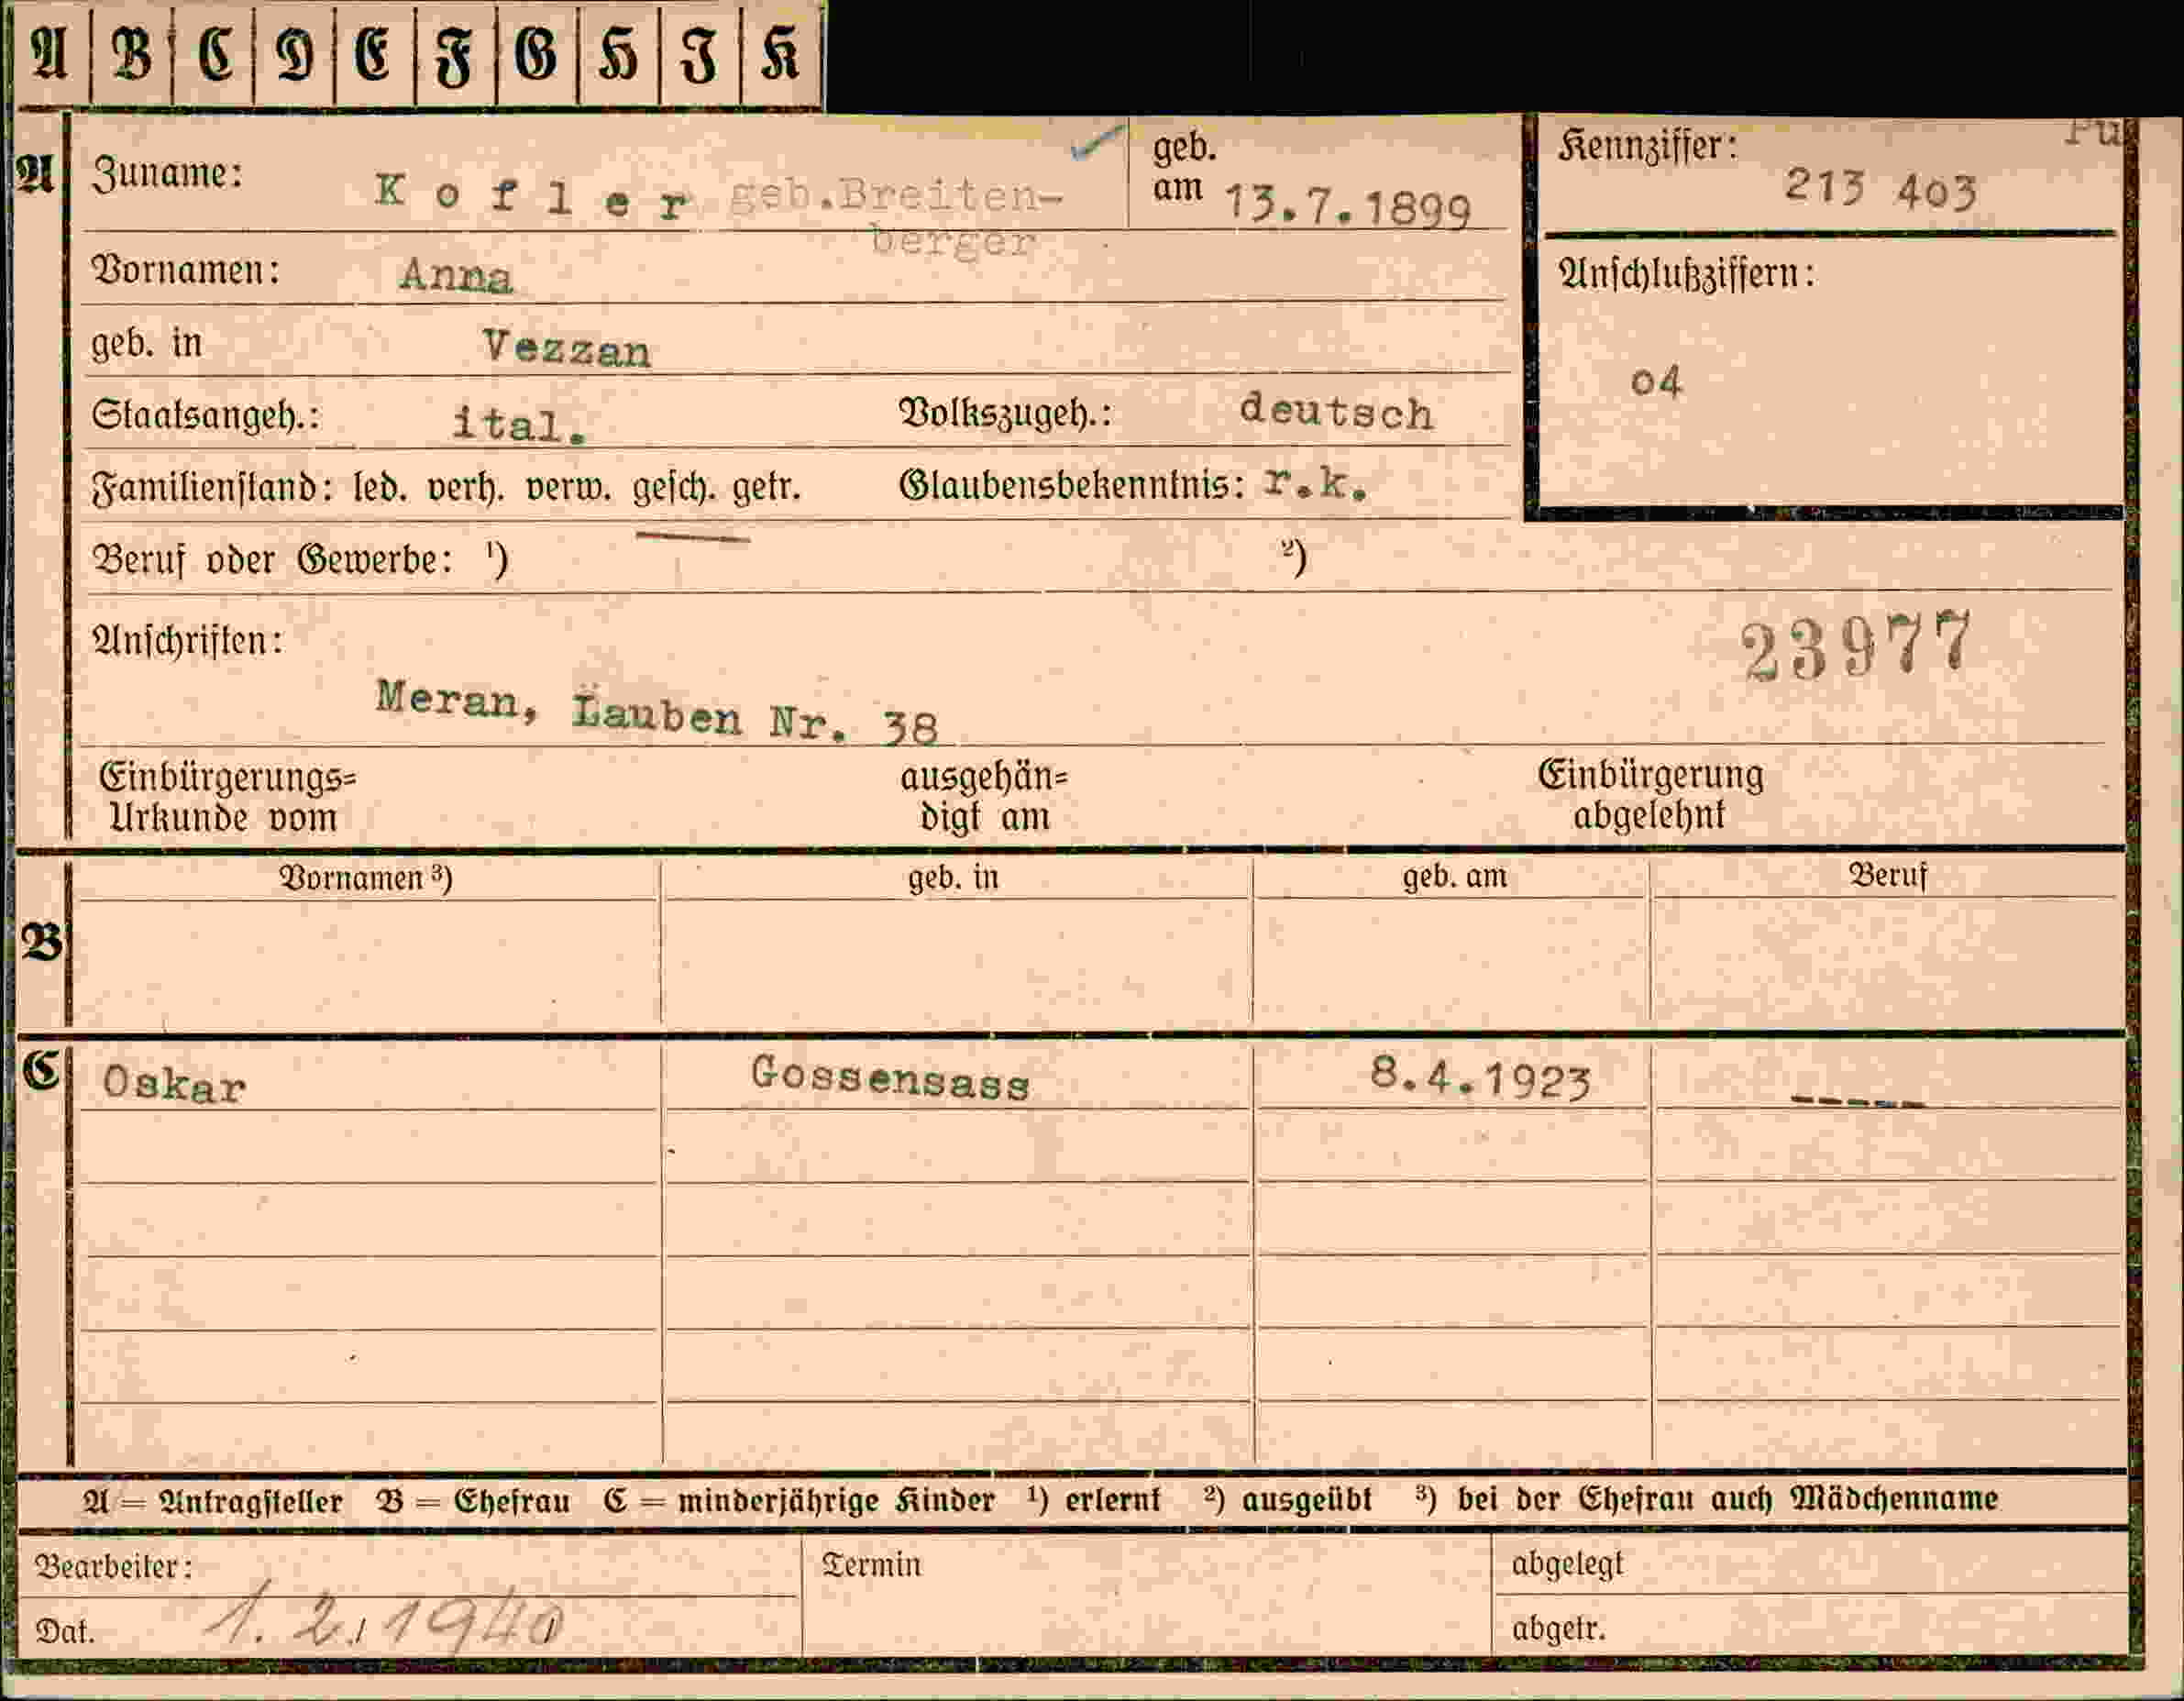 A B C D E F G H I K
A Zuname: Kofler geb.Breiten- geb. am 13.7.1899 Kennziffer: 213 403
berger
Vornamen: Anna Anschlußziffern:
geb. in Vezzan
04
Staatsangeh.: ital. Volkszugeh.: deutsch
Familienstand: led. verh. verw. gesch. getr. Glaubensbekenntnis: r.k.
Beruf oder Gewerbe: ¹) ²)
Anschriften: 23977
Meran, Lauben Nr. 38
Einbürgerungs= ausgehän= Einbürgerung
Urkunde vom digt am abgelehnt
Vornamen ³) geb. in geb. am Beruf
B
C Oskar Gossensass 8.4.1923 -----
A = Antragsteller B = Ehefrau C = minderjährige Kinder ¹) erlernt ²) ausgeübt ³) bei der Ehefrau auch Mädchenname
Bearbeiter: Termin abgelegt
Dat. 1.2.1940 abgetr.